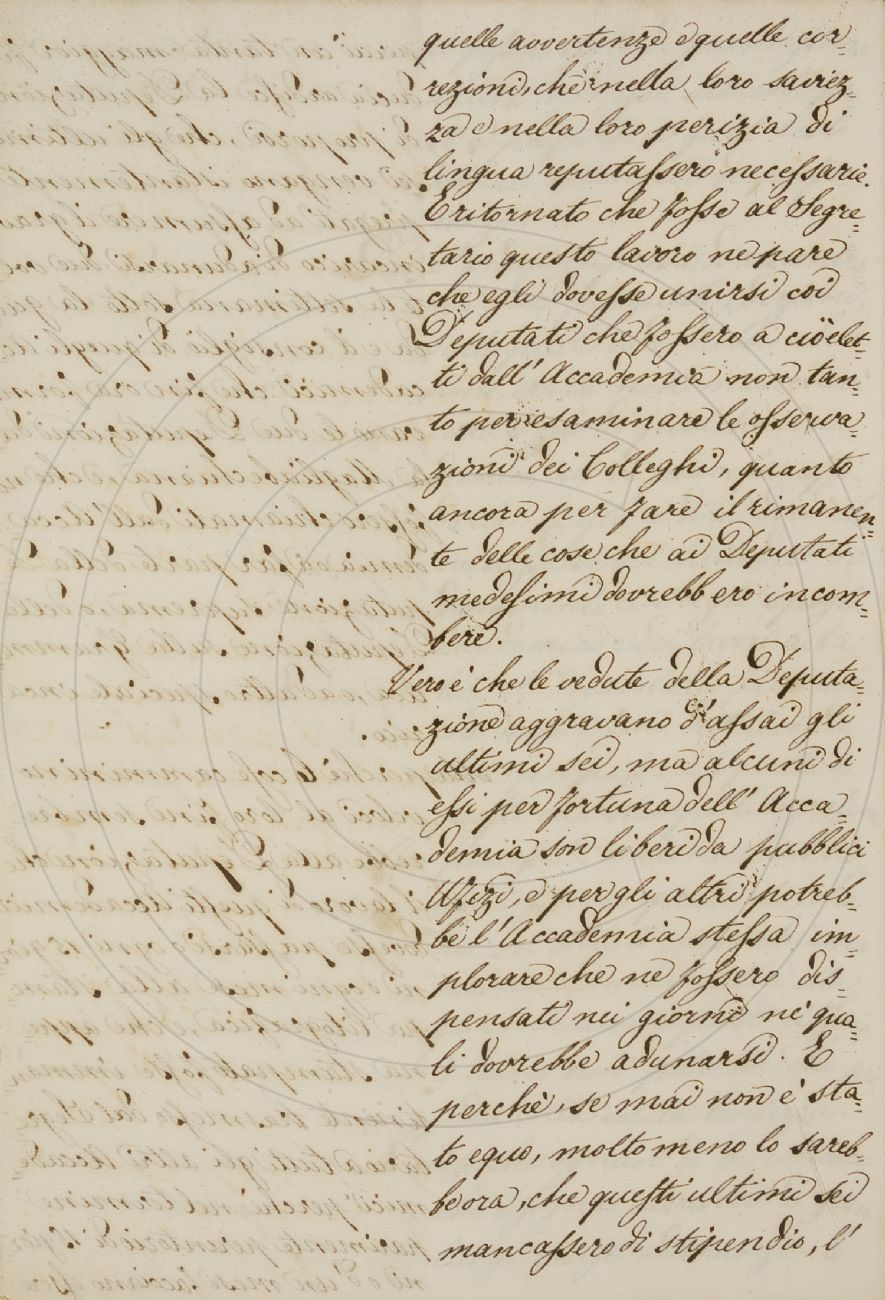 quelle avvertenze e quelle cor=
rezioni, che nella loro saviez=
za e nella loro perizia di
lingua reputassero necessarie.
E ritornato che fosse al Segre=
tario questo lavoro ne pare
che egli dovesse unirsi coi
Deputati che fossero a ciò elet=
ti dall' Accademia non tan=
to per esaminare le osserva=
zioni dei Colleghi, quanto
ancora per fare il rimanen=
te delle cose che ai Deputati
medesimi dovrebbero incom=
bere.
Vero è che le vedute della Deputa=
zione aggravano d'assai gli
ultimi sei, ma alcuni di
essi per fortuna dell' Acca=
demia son liberi da pubblici
Ufizi, e per gli altri potreb=
be l'Accademia stessa im=
plorare che ne fossero dis=
pensati nei giorni ne' qua=
li dovrebbe adunarsi. E
perchè, se mai non è sta=
to equo, molto meno lo sareb=
be ora, che questi ultimi sei
mancassero di stipendio, l'